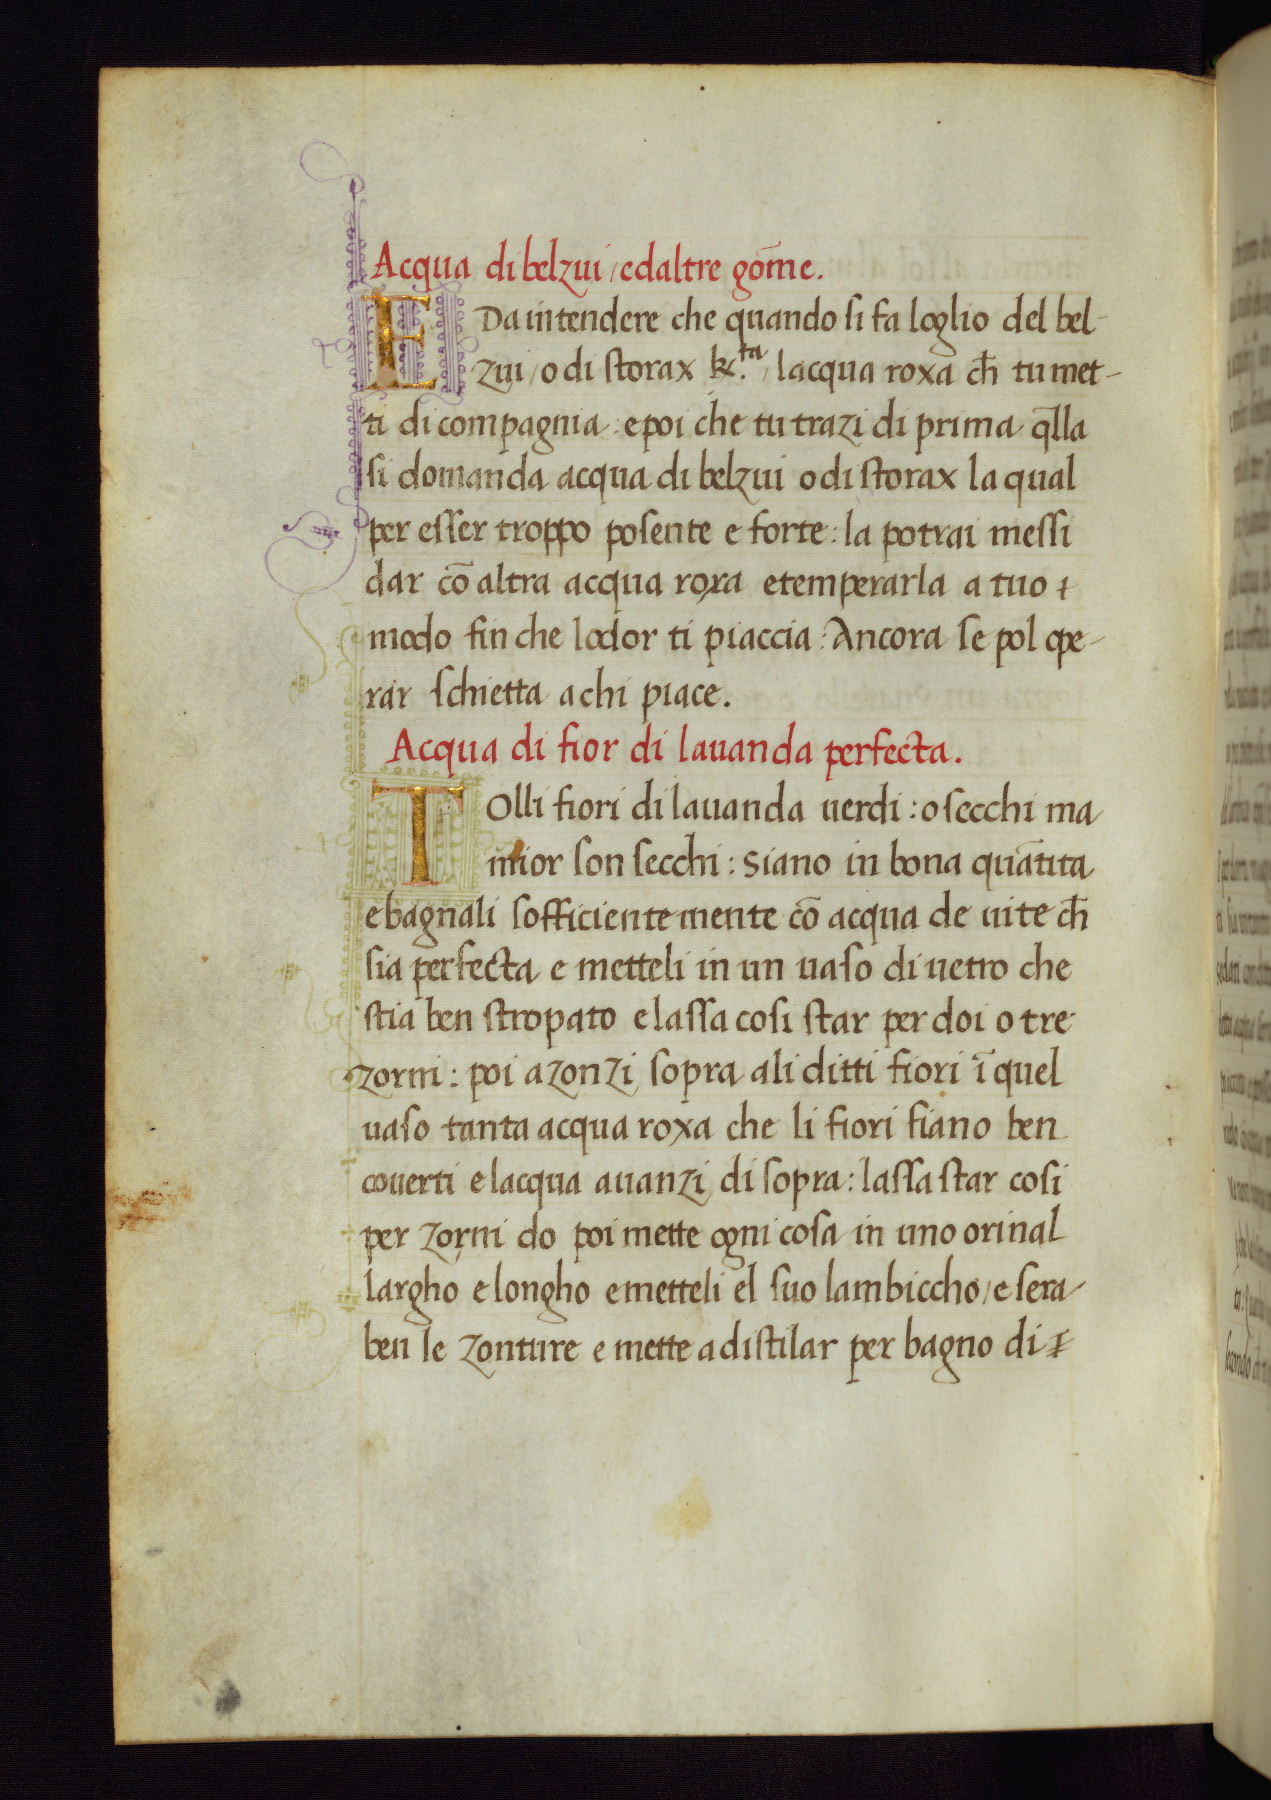 Acqua di belzui / edaltre gōme.
E Da intendere che quando si fa loglio del bel-
zui / o di storax &c.ta / lacqua roxa ch̄ tu met-
ti di compagnia : e poi che tu trazi di prima q̄lla
si domanda acqua di belzui o di storax la qual
per esser troppo posente e forte : la potrai messi
dar cō altra acqua roxa e temperarla a tuo
modo fin che lodor ti piaccia : Ancora se pol ope-
rar schietta a chi piace.
Acqua di fior di lauanda perfecta.
T Olli fiori di lauanda uerdi : o secchi ma
mior son secchi : siano in bona quātita
e bagnali sofficientemente cō acqua de uite ch̄
sia perfecta e metteli in un uaso di uetro che
stia ben stropato e lassa cosi star per doi o tre
zorni : poi azonzi sopra ali ditti fiori ī quel
uaso tanta acqua roxa che li fiori siano ben
couerti e lacqua auanzi di sopra : lassa star cosi
per zorni do poi mette ogni cosa in uno orinal
largho e longho e metteli el suo lambiccho / e sera
ben le zonture e mette a distilar per bagno di